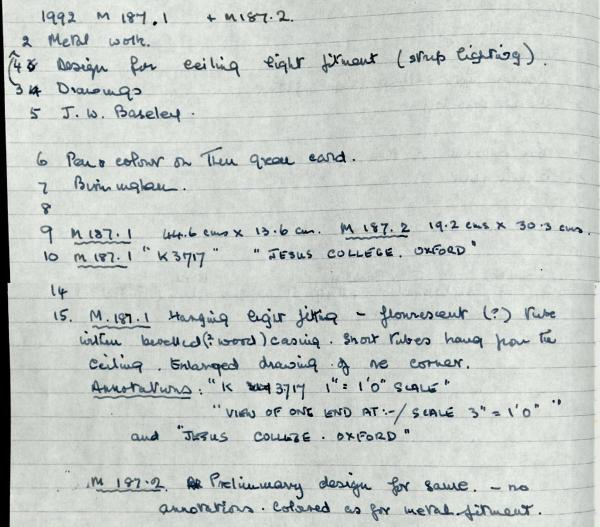 1992 M 187.1 + M187.2.
2 Metal work.
4 Design for ceiling light fitment (strip lighting).
3 Drawings
5 J. W. Baseley.
6 Pen & colour on thin green card.
7 Birmingham.
8
9 M 187.1 44.6 cms x 13.6 cm. M 187.2 19.2 cms x 30.3 cms.
10 M 187.1 "K3717" "JESUS COLLEGE. OXFORD"
14
15. M.187.1 Hanging light fitting - flourescent (?) tube
within bevelled (? wood) casing. Short tubes hang from the
ceiling. Enlarged drawing of one corner.
Annotations: "K 3717 1" = 1'0" SCALE"
"VIEW OF ONE END AT:-/ SCALE 3" = 1'0" "
and "JESUS COLLEGE. OXFORD"
M 187.2 Preliminary design for same. - no
annotations. Colored as for metal fitment.